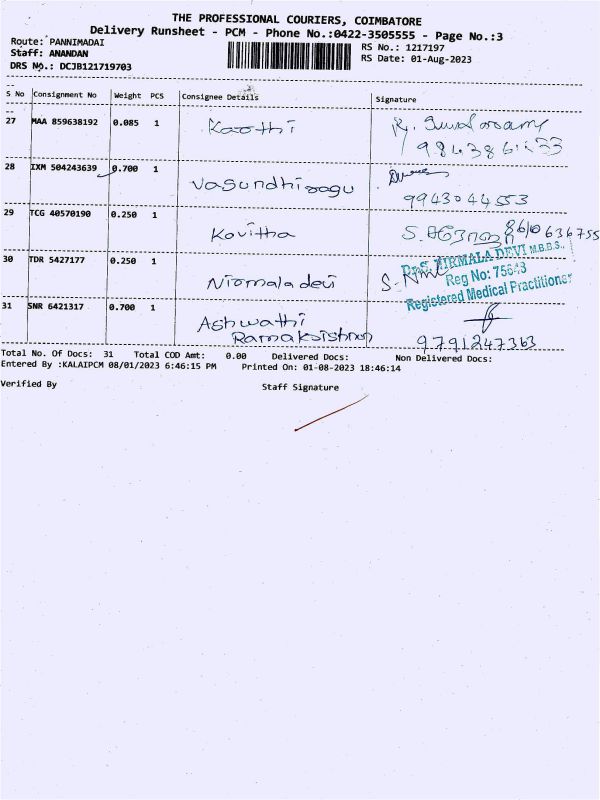 THE PROFESSIONAL COURIERS, COIMBATORE
Delivery Runsheet - PCM - Phone No.:0422-3505555 - Page No.:3
Route: PANNIMADAI
RS No.: 1217197
Staff: ANANDAN
RS Date: 01-Aug-2023
DRS No.: DCJB121719703
S No Consignment No Weight PCS Consignee Details Signature
27 MAA 859638192 0.085 1 Karthi
28 IXM 504243639 0.700 1 Vasundhiragu
9943044553
29 TCG 40570190 0.250 1 Kavitha 8610636755
30 TDR 5427177 0.250 1 Nirmala devi
Dr.S. NIRMALA DEVI M.B.B.S.,
Reg No: 75643
Registered Medical Practitioner
31 SNR 6421317 0.700 1 Ashwathi
Ramakrishnan 9791247363
Total No. Of Docs: 31 Total COD Amt: 0.00 Delivered Docs: Non Delivered Docs:
Entered By :KALAIPCM 08/01/2023 6:46:15 PM Printed On: 01-08-2023 18:46:14
Verified By Staff Signature